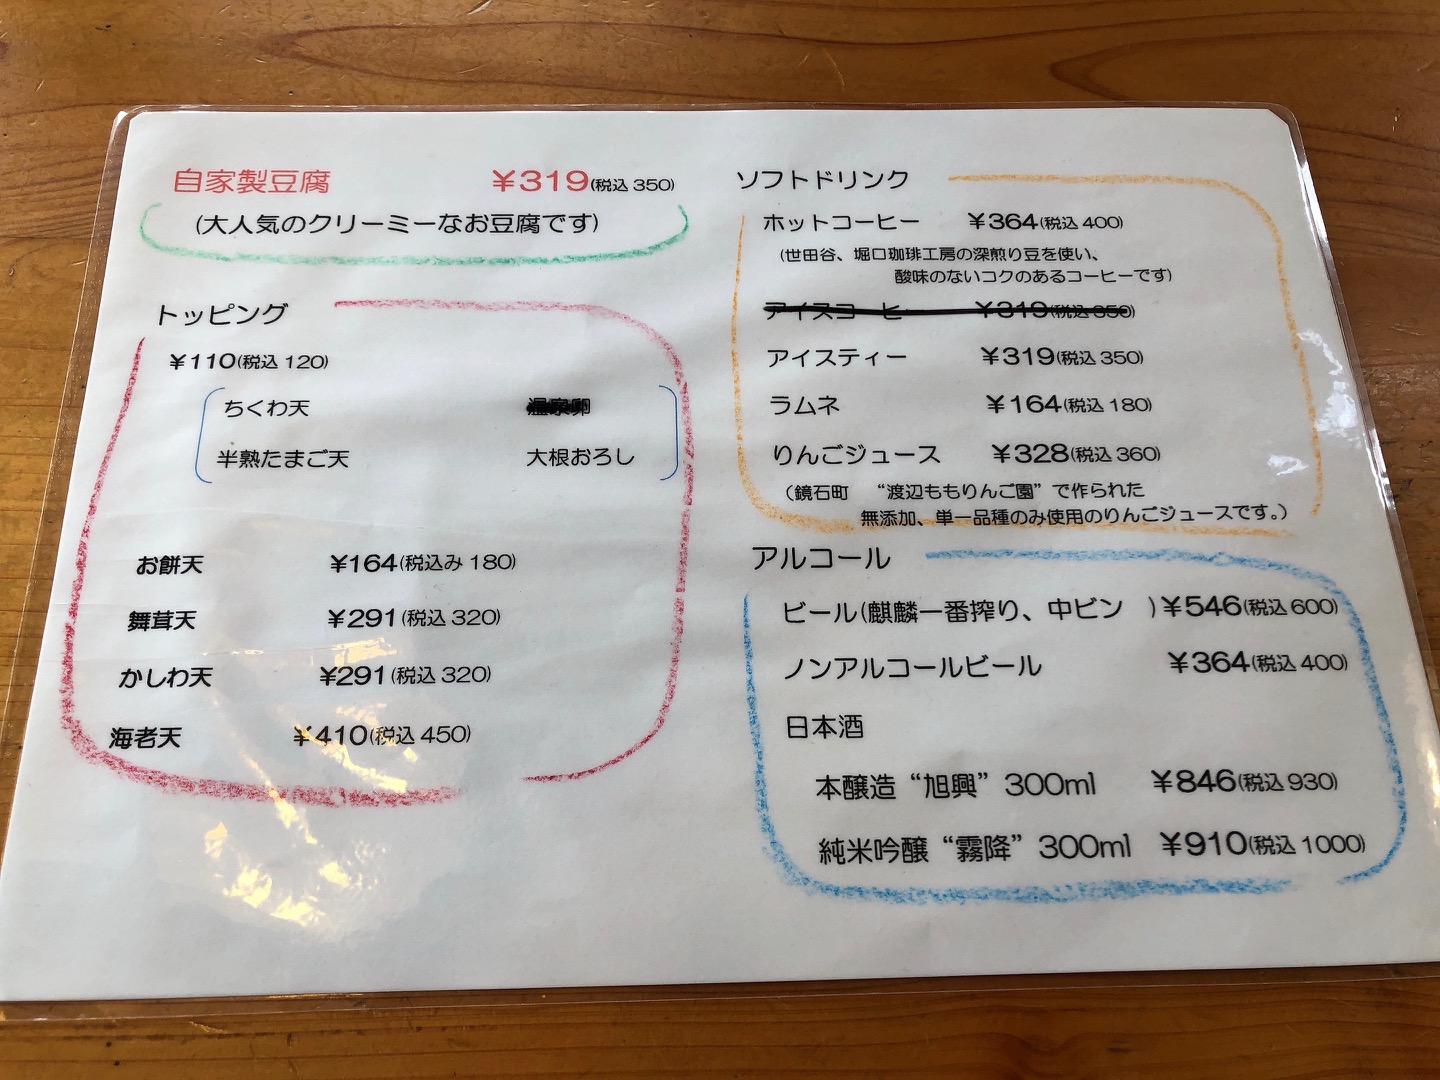 自家製豆腐 ¥319(税込 350)
(大人気のクリーミーなお豆腐です)
トッピング
¥110(税込 120)
ちくわ天 温泉卵
半熟たまご天 大根おろし
お餅天 ¥164(税込み 180)
舞茸天 ¥291(税込 320)
かしわ天 ¥291(税込 320)
海老天 ¥410(税込 450)
ソフトドリンク
ホットコーヒー ¥364(税込 400)
(世田谷、堀口珈琲工房の深煎り豆を使い、
酸味のないコクのあるコーヒーです)
アイスコーヒー ¥319(税込 350)
アイスティー ¥319(税込 350)
ラムネ ¥164(税込 180)
りんごジュース ¥328(税込 360)
(鏡石町 “渡辺ももりんご園”で作られた
無添加、単一品種のみ使用のりんごジュースです。)
アルコール
ビール(麒麟一番搾り、中ビン )¥546(税込 600)
ノンアルコールビール ¥364(税込 400)
日本酒
本醸造“旭興”300ml ¥846(税込 930)
純米吟醸“霧降”300ml ¥910(税込 1000)